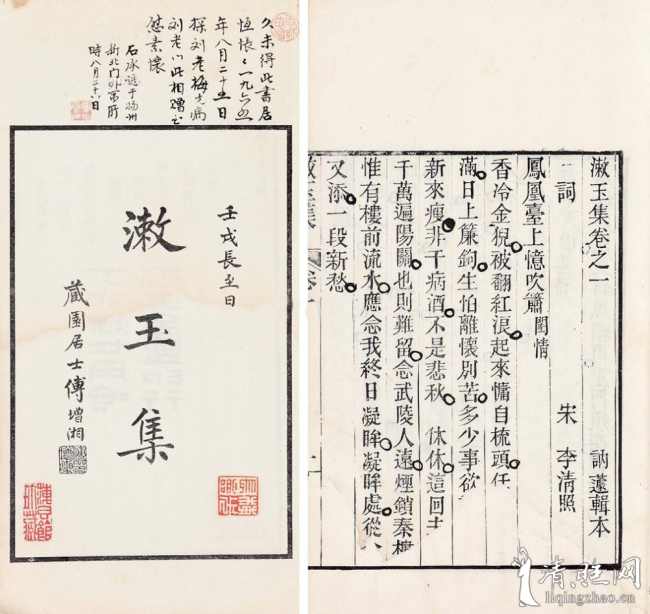 久未得此書居
恆悵々一九六五
年八月二十五日
探刘老梅先病
刘老以此相赠至
慰素懷
石承誌于揚州
新北门外寓所
時八月二十六日
壬戌長至日
漱玉集
藏園居士傅增湘
漱玉集卷之一 訥盦輯本
詞 宋 李清照
鳳凰臺上憶吹簫 閨情
香冷金猊被翻紅浪起來慵自梳頭任
滿日上簾鉤生怕離懷別苦多少事欲
新來瘦非干病酒不是悲秋 休休這回去
千萬遍陽關也則難留念武陵人遠煙鎖秦樓
惟有樓前流水應念我終日凝眸凝眸處從今
又添一段新愁
漱玉集 卷一
liqingzhao.com